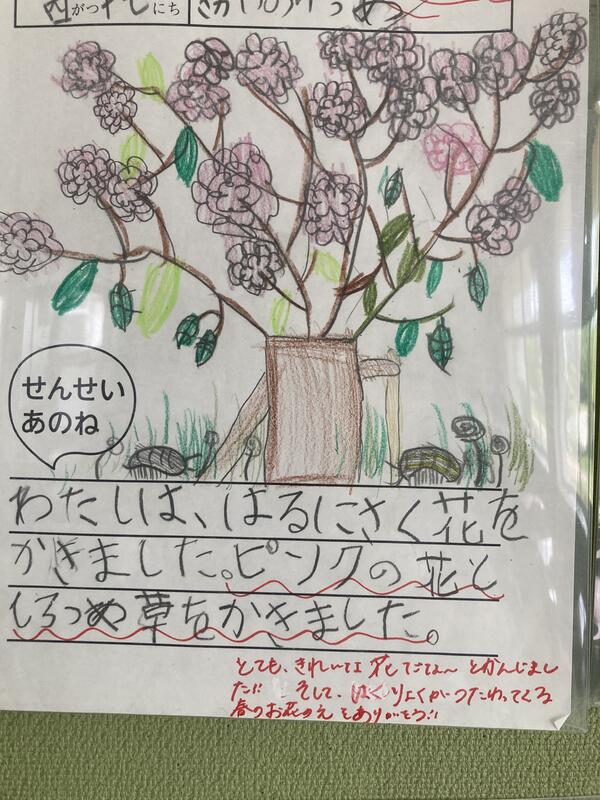 がつ にち
せんせい
あのね
わたしは、はるにさく花を
かきました。ピンクの花と
しろつめ草をかきました。
とても、きれいな花だな〜とかんじまし
た!! そして、はくりょくがつたわってくる
春のお花のえをありがとう!!